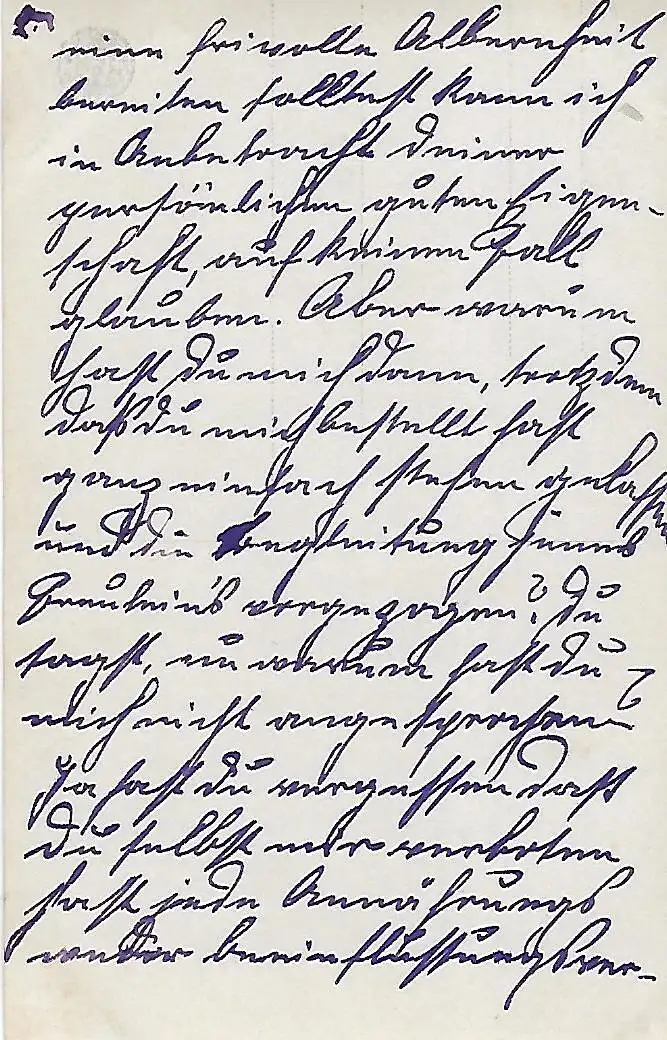 5.
eine frivolle Albernheit
bereiten solltest kann ich
in Anbetracht deiner
persönlichen guten Eigen-
schaft, auf keinen Fall
glauben. Aber warum
hast du mich dann, trotzdem
daß du mich bestellt hast
ganz einfach stehen gelassen
und die Begleitung jenes
Fräulein's vorgezogen? Du
sagst, nu warum hast du
mich nicht angesprochen?
Ja hast du vergessen daß
du selbst mir verboten
hast jede Annährungs
weder beeinflussungsver-